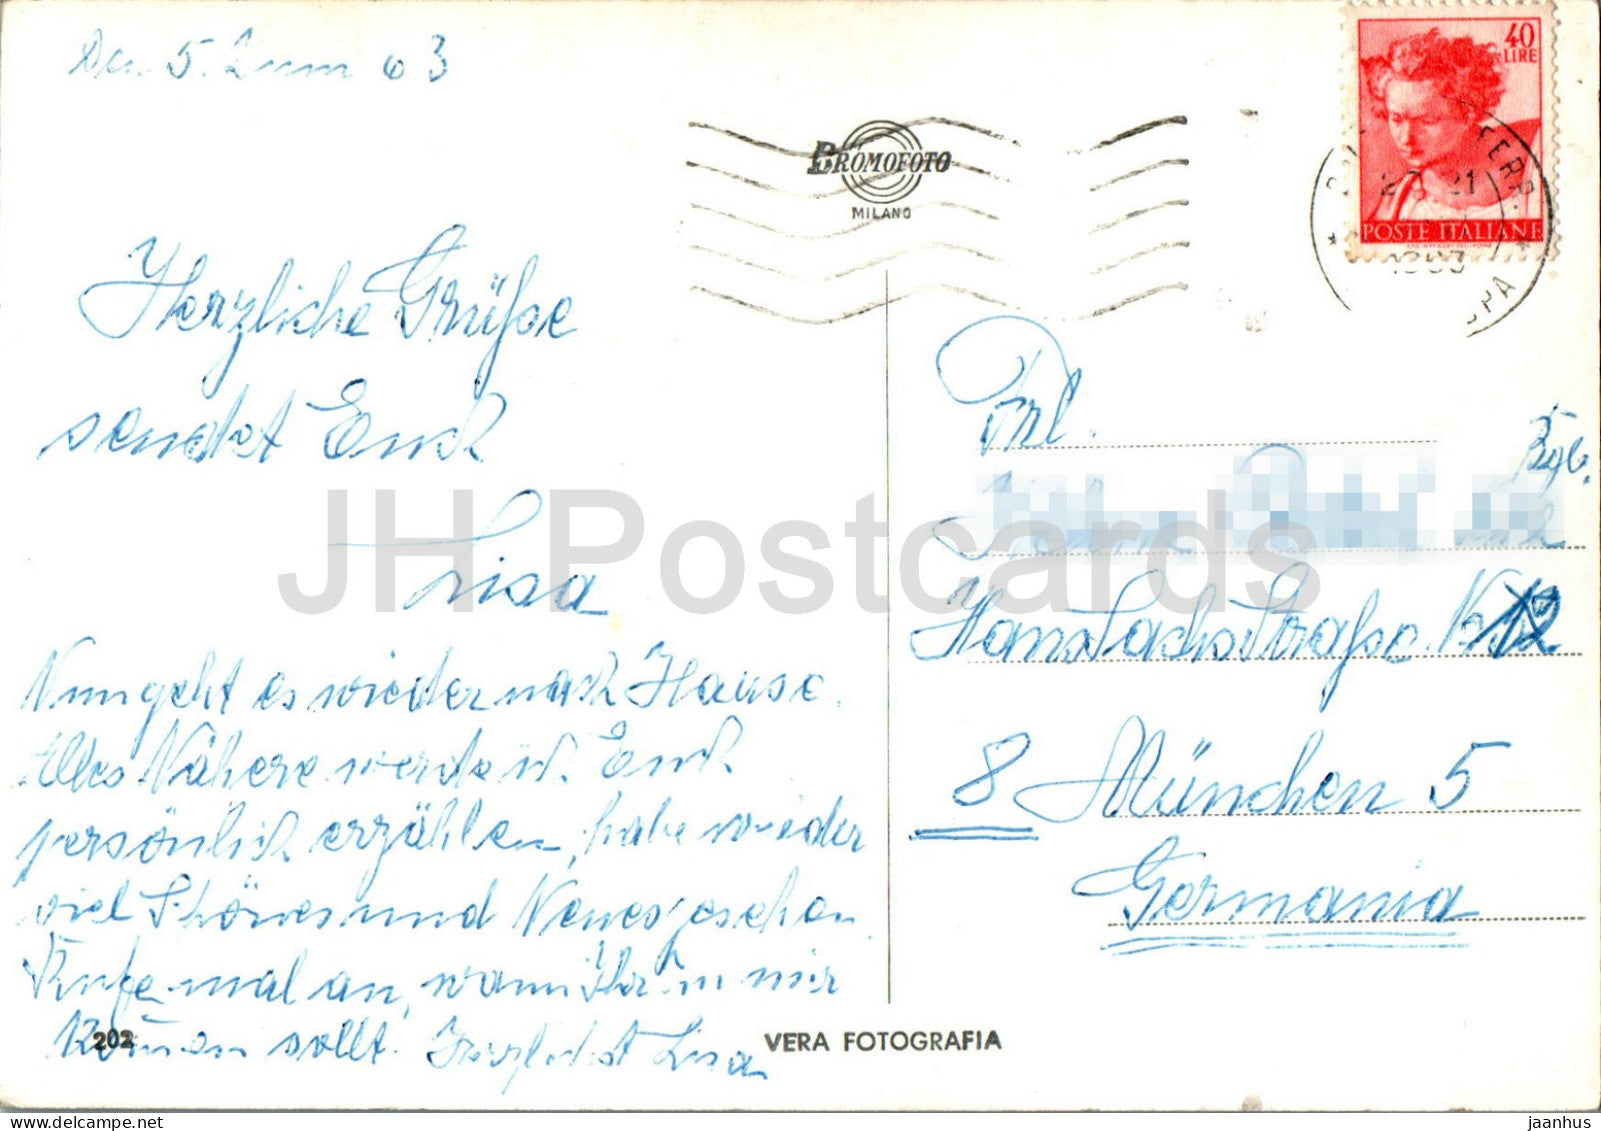 Den 5. Juni 63
BROMOFOTO
MILANO
40
LIRE
POSTE ITALIANE
1963
Herzliche Grüße
sendet Euch
Lisa
Nun geht es wieder nach Hause.
Alles Nähere werde ich Euch
persönlich erzählen, habe wieder
viel Schönes und Neues gesehen.
Rufe mal an, wann Ihr zu mir
kommen sollt. Herzlichst Lisa
202
VERA FOTOGRAFIA
Frl.
Hans Sachs Straße Nr. 12
8 München 5
Germania
JH Postcards
jaanhus